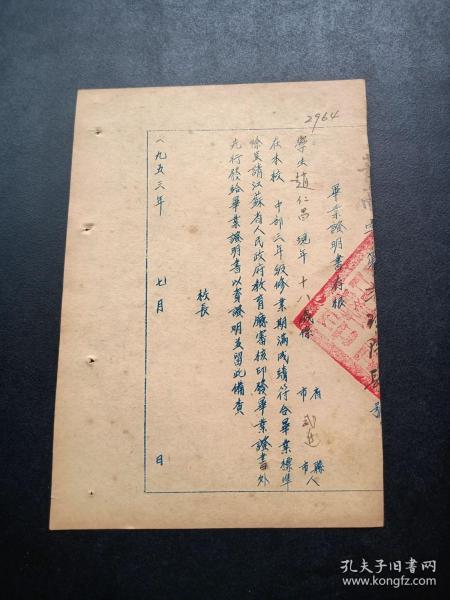 2964
畢業證明書存根
學生趙仁昌現年十八歲係 省 市 武進 縣 市 人
在本校 中部三年級修業期滿成績符合畢業標準
除呈請江蘇省人民政府教育廳審核印發畢業證書外
先行發給畢業證明書以資證明並留此備查
校長
一九五三年 七月 日
孔夫子旧书网
www.kongfz.com